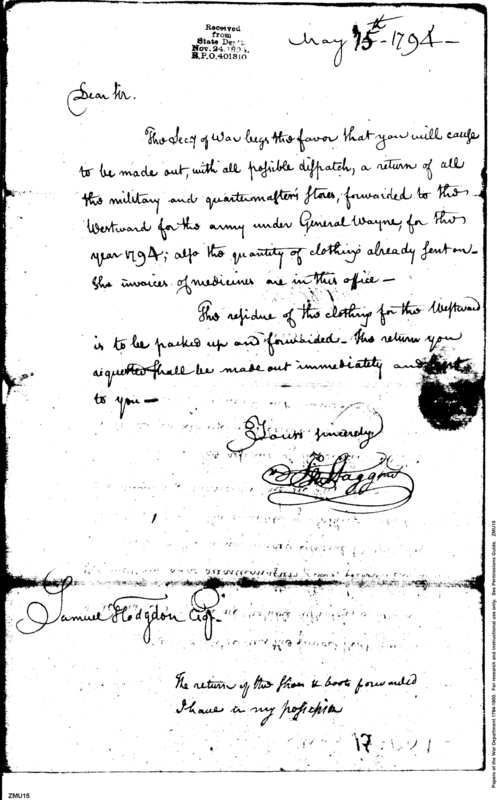 Received
from
State Dept.
Nov. 24. 1894.
R.P.O. 401810
May 15th - 1794 -
Dear Sir.
The Secy of War begs the favor that you will cause
to be made out, with all possible dispatch, a return of all
the military and quartermaster's stores, forwarded to the
Westward for the army under General Wayne, for the
year 1794; also the quantity of clothing already sent on -
The invoices of medicines are in this office -
The residue of the clothing for the Westward
is to be packed up and forwarded - The return you
requested shall be made out immediately and sent
to you -
Yours sincerely
Jno Stagg Jr
Samuel Hodgdon Esqr.
The return of the shoes & boots forwarded
I have in my possession
17
ZMU15
Papers of the War Department 1784-1800. For research and instructional use only. See Permissions Guide. ZMU15